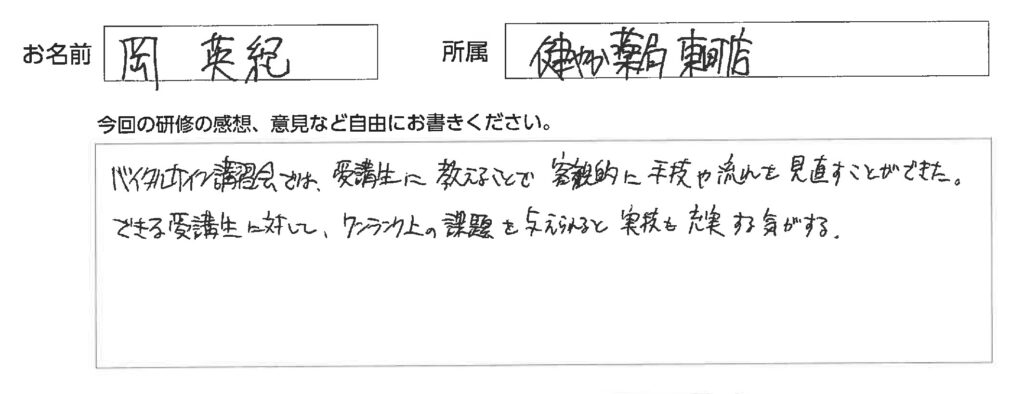 お名前 岡 英紀 所属 健やか薬局 東町店
今回の研修の感想、意見など自由にお書きください。
バイタルサイン講習会では、受講生に教えることで客観的に手技や流れを見直すことができた。
できる受講生に対して、ワンランク上の課題を与えられると実技も充実する気がする。